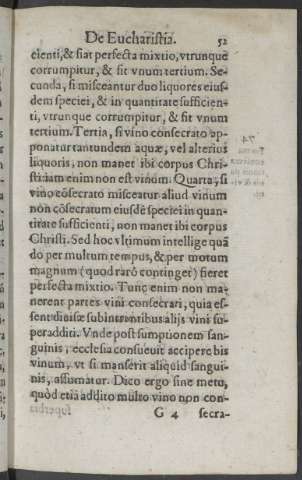 De Eucharistia. 52
cienti, & fiat perfecta mixtio, vtrunque
corrumpitur, & fit vnum tertium. Se-
cunda, si misceantur duo liquores eius-
dem speciei, & in quantitate sufficien-
ti, vtrunque corrumpitur, & fit vnum
tertium. Tertia, si vino consecrato ap-
ponatur tantundem aquæ, vel alterius
liquoris, non manet ibi corpus Chri-
sti: nam enim non est vinum. Quarta, si
vino cōsecrato misceatur aliud vinum
non cōsecratum eiusdē speciei in quan-
titate sufficienti, non manet ibi corpus
Christi. Sed hoc vltimum intellige quā
do per multum tempus, & per motum
magnum (quod rarò continget) fieret
perfecta mixtio. Tunc enim non ma-
nerent partes vini consecrari, quia es-
sent diuisæ subintrantibus alijs vini su-
peradditi. Vnde post sumptionem san-
guinis, ecclesia consueuit accipere bis
vinum, vt si manserit aliquid sangui-
nis, assumatur. Dico ergo sine metu,
quòd etiā addito multo vino non con-
G 4 secra-